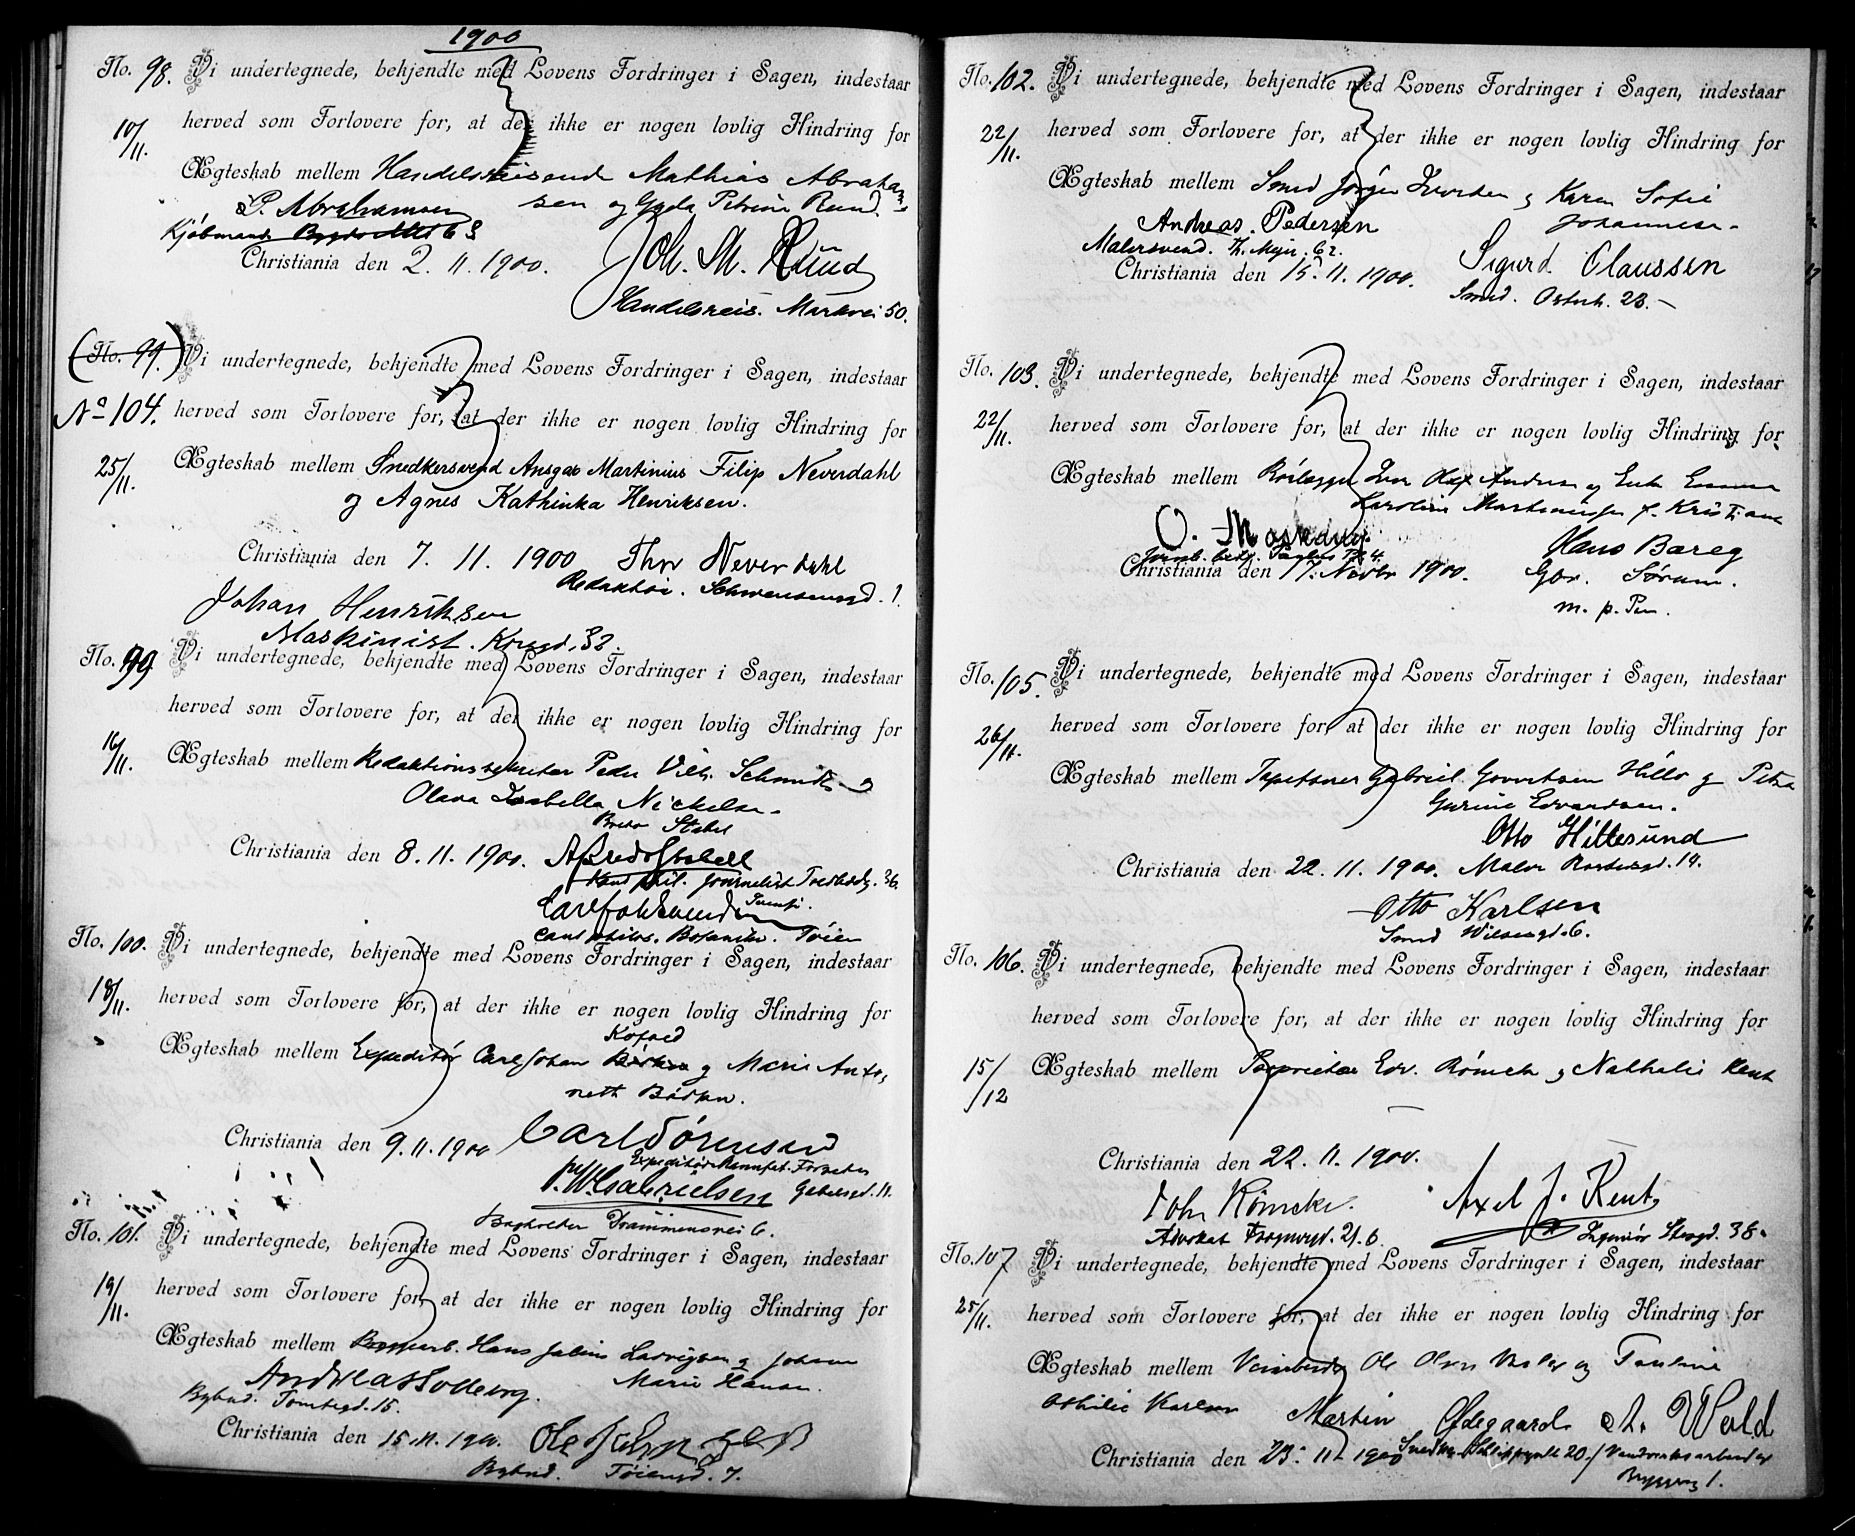 1900
No. 98. Vi undertegnede, bekjendte med Lovens Fordringer i Sagen, indestaar
10/11. herved som Forlovere for, at der ikke er nogen lovlig Hindring for
Ægteskab mellem Handelsreisende Mathias Abraham-
sen og Gyda Petrine Ruud.
P. Abrahamsen
Kjøbmand
Christiania den 2. 11. 1900. Joh. M. Ruud
Handelsreis. Markvei 50.
(No. 99.) Vi undertegnede, bekjendte med Lovens Fordringer i Sagen, indestaar
No 104. herved som Forlovere for, at der ikke er nogen lovlig Hindring for
25/11. Ægteskab mellem Snedkersvend Ansgar Martinius Filip Neverdahl
og Agnes Kathinka Henriksen.
Christiania den 7. 11. 1900 Thv Neverdahl
Redaktør. Schwensensgd. 1.
Johan Henriksen
Maskinist. Krugd. 32.
No. 99 Vi undertegnede, bekjendte med Lovens Fordringer i Sagen, indestaar
herved som Forlovere for, at der ikke er nogen lovlig Hindring for
16/11. Ægteskab mellem Redaktionssekretær Peder Vilh. Schmidt og
Olava Isabella Nickelsen
Christiania den 8. 11. 1900. Alfred Stabell
Cand phil. Journalist
Cand philos. Botaniker. Tøien
No. 100. Vi undertegnede, bekjendte med Lovens Fordringer i Sagen, indestaar
18/11. herved som Forlovere for, at der ikke er nogen lovlig Hindring for
Kofoed
Ægteskab mellem Expeditør Carl Johan og Marie Anto-
nette
Christiania den 9. 11. 1900 Carl Sørensen
Expeditør
W. Gabrielsen Gabelsgd. 11.
Bogholder Drammensvei 6.
No. 101. Vi undertegnede, bekjendte med Lovens Fordringer i Sagen, indestaar
19/11. herved som Forlovere for, at der ikke er nogen lovlig Hindring for
Ægteskab mellem Hans Julius Ludvigsen og Johanne
Marie Hansen.
Andreas Solberg
Bybud. Tomtegd. 15.
Christiania den 15. 11. 1900.
Bybud. Tøiengd. 7.
No. 102. Vi undertegnede, bekjendte med Lovens Fordringer i Sagen, indestaar
22/11. herved som Forlovere for, at der ikke er nogen lovlig Hindring for
Ægteskab mellem Smed Jørgen Iversen og Karen Sofie
Johannesen
Andreas Pedersen
Malersvend. Th. Meyer. 62.
Christiania den 15. 11. 1900. Sigurd Olaussen
Smed. 23.
No. 103. Vi undertegnede, bekjendte med Lovens Fordringer i Sagen, indestaar
22/11. herved som Forlovere for, at der ikke er nogen lovlig Hindring for
Ægteskab mellem Rørlægger Olaf Andersen og Enke Emma
Karoline f. Kristians
O.
Christiania den 17. Novbr 1900. Hans Bareg
Gbr. Sørum.
m. p. Pen.
No. 105. Vi undertegnede, bekjendte med Lovens Fordringer i Sagen, indestaar
26/11. herved som Forlovere for, at der ikke er nogen lovlig Hindring for
Ægteskab mellem Tapetserer Gabriel Govertsen Hille og Petra
Gurine Edvardsen.
Otto Hillesund
Christiania den 22. 11. 1900. Maler 19.
Otto Karlsen
Smed Wilsesgd. 6.
No. 106. Vi undertegnede, bekjendte med Lovens Fordringer i Sagen, indestaar
herved som Forlovere for, at der ikke er nogen lovlig Hindring for
15/12 Ægteskab mellem Proprietær Edv. Rømcke og Nathalie Rent
Christiania den 22. 11. 1900.
Joh. Rømcke. Axel J. Rent
Advokat Frognervd. 21. b. Ingeniør Stensgd. 38.
No. 107 Vi undertegnede, bekjendte med Lovens Fordringer i Sagen, indestaar
25/11. herved som Forlovere for, at der ikke er nogen lovlig Hindring for
Ægteskab mellem Ole Olsen og Pauline
Othilie Karlsen Martin Ødegaard. A. Wold
Christiania den 23. 11. 1900 Snedker 20. / Vandværksarbeider
1.